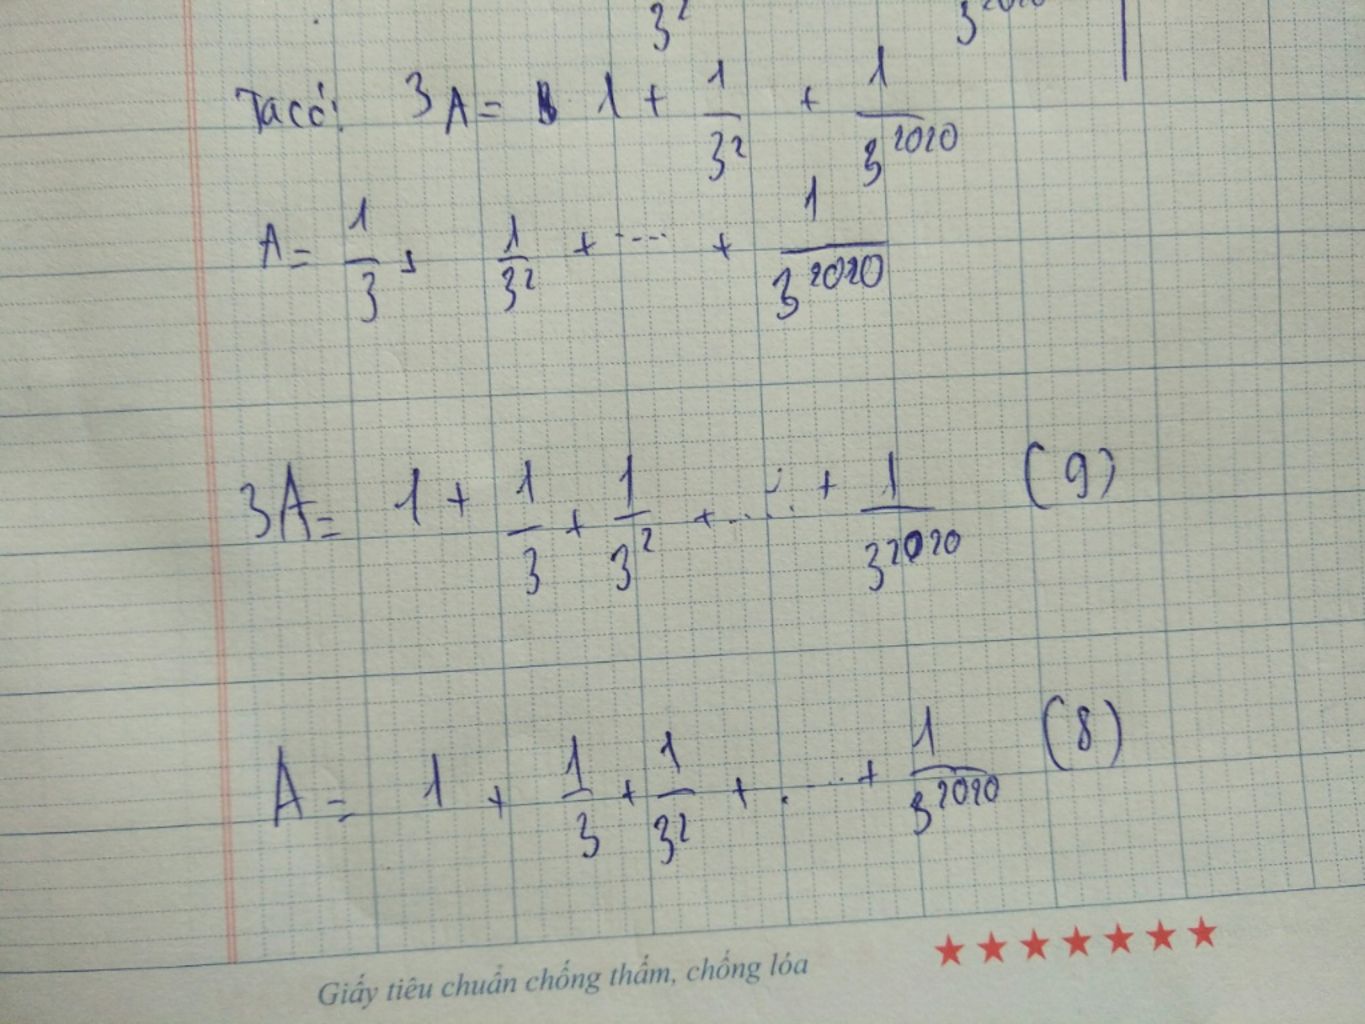 3² 3²⁰²⁰
Ta có: 3A = 1 + 1/3² + 1/3²⁰²⁰
A = 1/3 + 1/3² + ... + 1/3²⁰²⁰
3A = 1 + 1/3 + 1/3² + ... + 1/3²⁰²⁰ (9)
A = 1 + 1/3 + 1/3² + ... + 1/3²⁰²⁰ (8)
Giấy tiêu chuẩn chống thấm, chống lóa ★★★★★★★